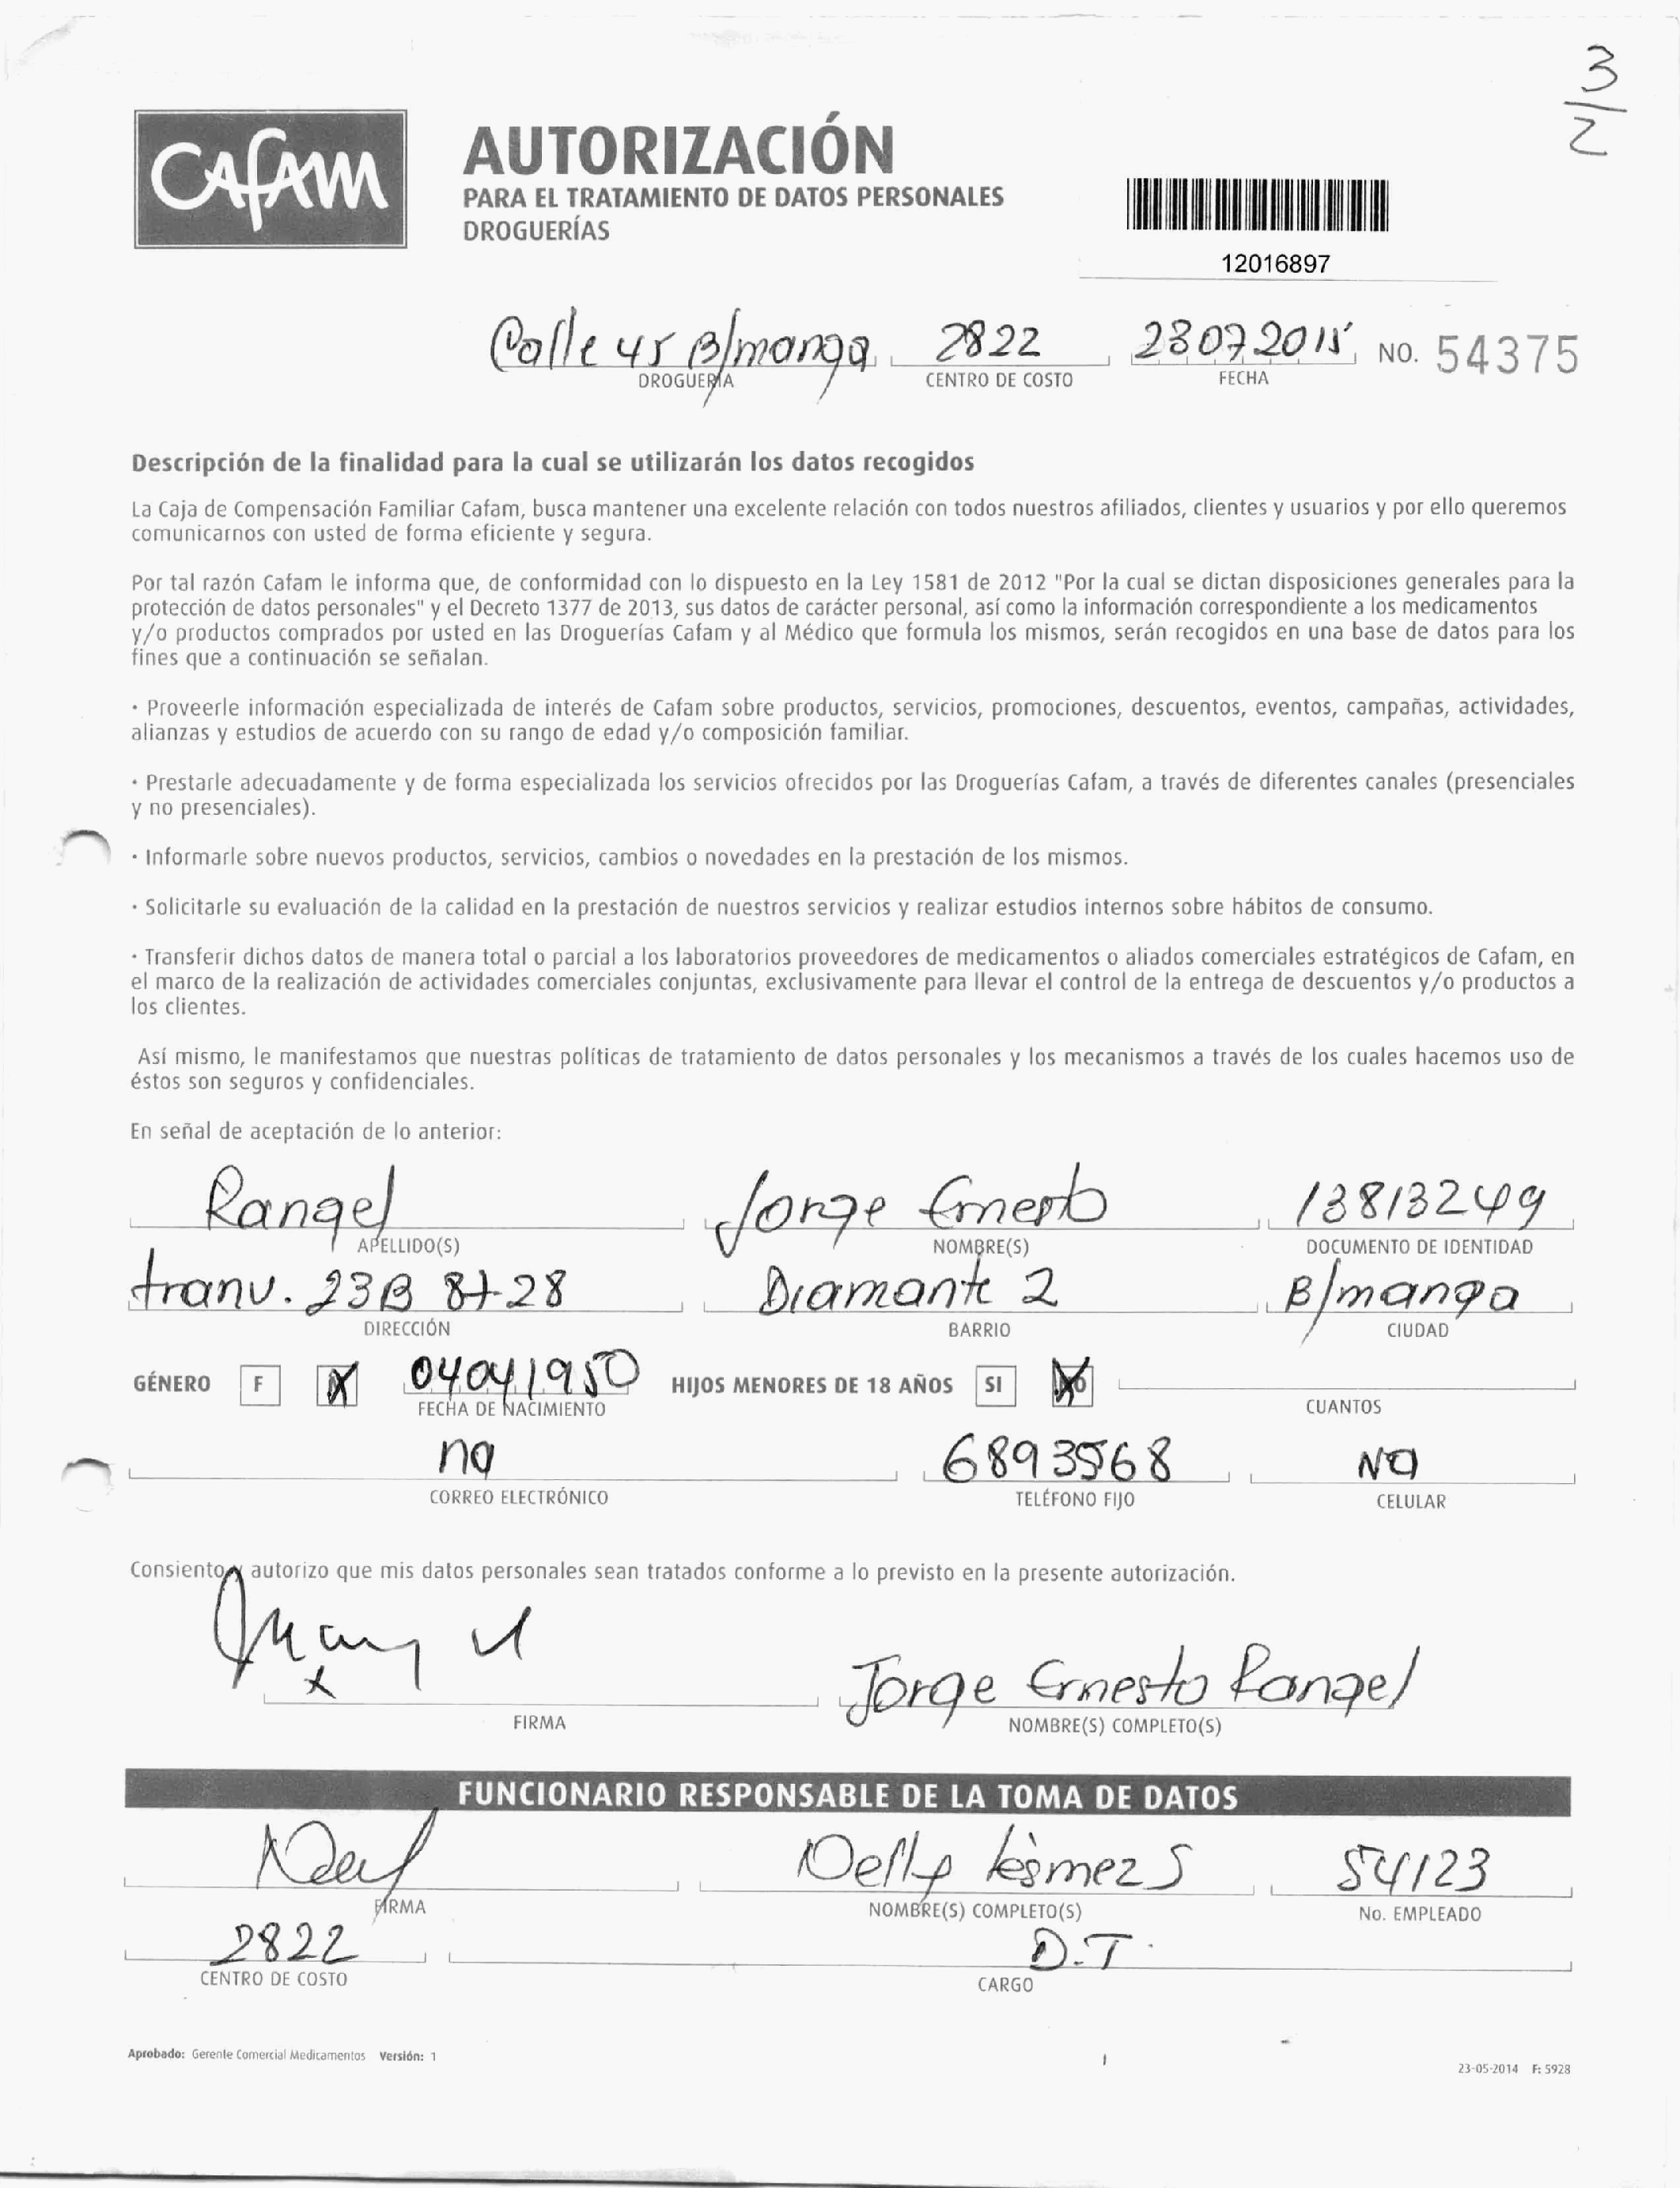 3/2
Cafam
AUTORIZACIÓN
PARA EL TRATAMIENTO DE DATOS PERSONALES
DROGUERÍAS
12016897
Calle 45 B/manga 2822 28072015 NO. 54375
DROGUERÍA CENTRO DE COSTO FECHA
Descripción de la finalidad para la cual se utilizarán los datos recogidos
La Caja de Compensación Familiar Cafam, busca mantener una excelente relación con todos nuestros afiliados, clientes y usuarios y por ello queremos
comunicarnos con usted de forma eficiente y segura.
Por tal razón Cafam le informa que, de conformidad con lo dispuesto en la Ley 1581 de 2012 "Por la cual se dictan disposiciones generales para la
protección de datos personales" y el Decreto 1377 de 2013, sus datos de carácter personal, así como la información correspondiente a los medicamentos
y/o productos comprados por usted en las Droguerías Cafam y al Médico que formula los mismos, serán recogidos en una base de datos para los
fines que a continuación se señalan.
· Proveerle información especializada de interés de Cafam sobre productos, servicios, promociones, descuentos, eventos, campañas, actividades,
alianzas y estudios de acuerdo con su rango de edad y/o composición familiar.
· Prestarle adecuadamente y de forma especializada los servicios ofrecidos por las Droguerías Cafam, a través de diferentes canales (presenciales
y no presenciales).
· Informarle sobre nuevos productos, servicios, cambios o novedades en la prestación de los mismos.
· Solicitarle su evaluación de la calidad en la prestación de nuestros servicios y realizar estudios internos sobre hábitos de consumo.
· Transferir dichos datos de manera total o parcial a los laboratorios proveedores de medicamentos o aliados comerciales estratégicos de Cafam, en
el marco de la realización de actividades comerciales conjuntas, exclusivamente para llevar el control de la entrega de descuentos y/o productos a
los clientes.
Así mismo, le manifestamos que nuestras políticas de tratamiento de datos personales y los mecanismos a través de los cuales hacemos uso de
éstos son seguros y confidenciales.
En señal de aceptación de lo anterior:
Rangel Jorge Ernesto 13813249
APELLIDO(S) NOMBRE(S) DOCUMENTO DE IDENTIDAD
tranv. 23B 87-28 Diamante 2 B/manga
DIRECCIÓN BARRIO CIUDAD
GÉNERO F X 04041950 HIJOS MENORES DE 18 AÑOS SI X
FECHA DE NACIMIENTO CUANTOS
na 6893568 NO
CORREO ELECTRÓNICO TELÉFONO FIJO CELULAR
Consiento y autorizo que mis datos personales sean tratados conforme a lo previsto en la presente autorización.
x Jorge Ernesto Rangel
FIRMA NOMBRE(S) COMPLETO(S)
FUNCIONARIO RESPONSABLE DE LA TOMA DE DATOS
Nelly S 54123
FIRMA NOMBRE(S) COMPLETO(S) No. EMPLEADO
2822 D.T.
CENTRO DE COSTO CARGO
Aprobado: Gerente Comercial Medicamentos Versión: 1
23-05-2014 F: 5928